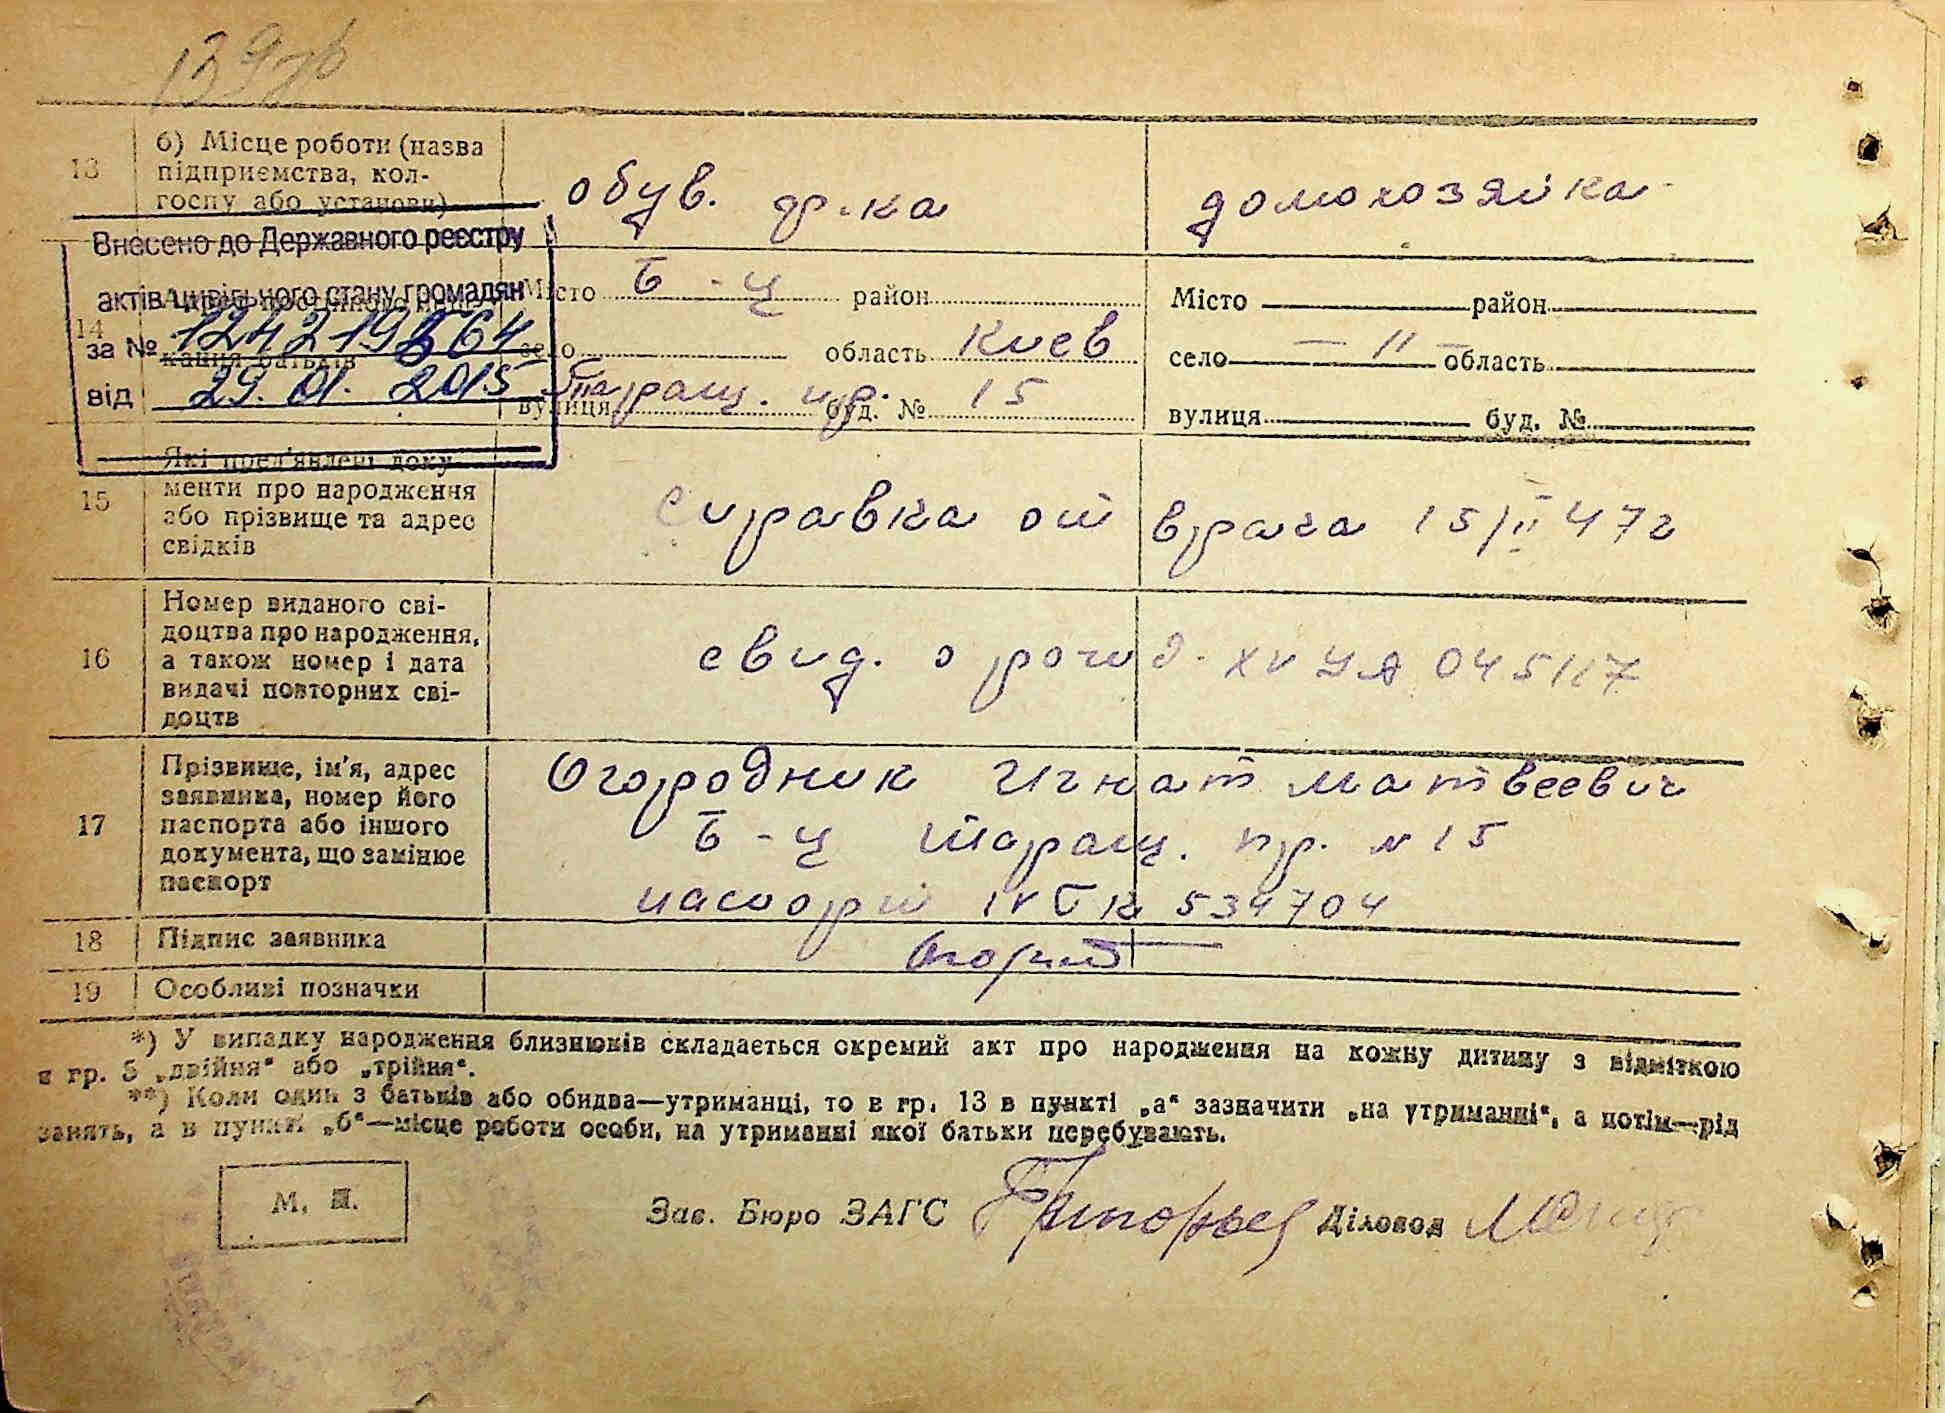 139
13 б) Місце роботи (назва підприємства, колгоспу або установи) обув. ф-ка домохозяйка
Внесено до Державного реєстру
актів цивільного стану громадян
за №
від 29.01.2015
14
Місто Б-Ц район
село область Киев
вулиця Таращ. пр. буд. № 15
Місто район
село — " — область
вулиця буд. №
15 Які пред'явлені доку-
менти про народження
або прізвище та адрес
свідків
справка от врача 15/II 47г
16 Номер виданого сві-
доцтва про народження,
а також номер і дата
видачі повторних сві-
доцтв
свид. о рожд.
17 Прізвище, ім'я, адрес
заявника, номер його
паспорта або іншого
документа, що замінює
паспорт
Огородник Игнат Матвеевич
Б-Ц Таращ. пр. № 15
паспорт 534704
18 Підпис заявника
19 Особливі позначки
*) У випадку народження близнюків складається окремий акт про народження на кожну дитину з відміткою
в гр. 5 „двійня“ або „трійня“.
**) Коли один з батьків або обидва—утриманці, то в гр. 13 в пункті „а“ зазначити „на утриманні“, а потім—рід
занять, а в пункті „б“—місце роботи особи, на утриманні якої батьки перебувають.
М. П.
Зав. Бюро ЗАГС Діловод